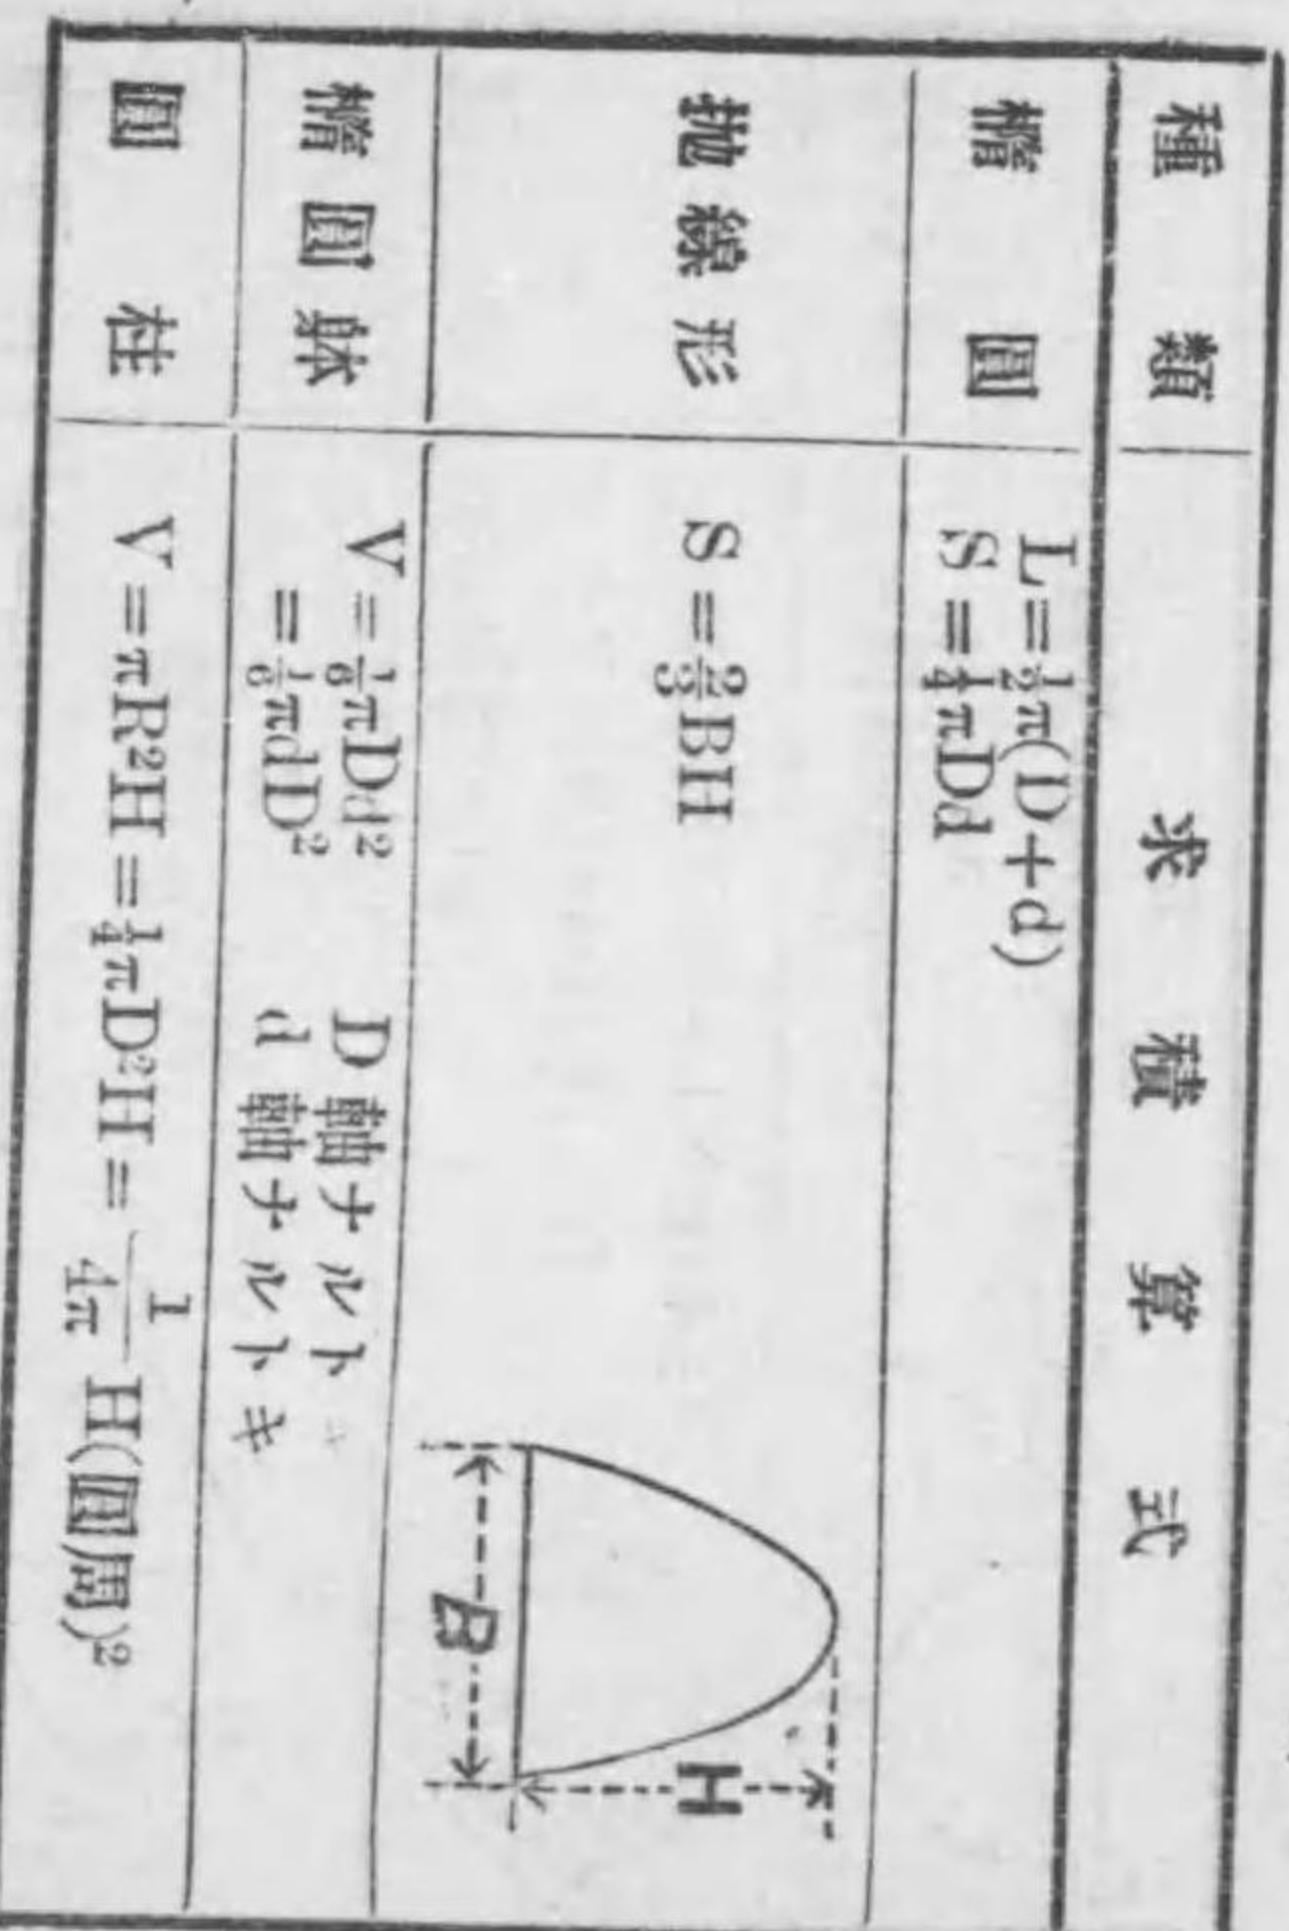 種類 求積算式
楕圓 L=½π(D+d)
S=¼πDd
抛線形 S=⅔BH
B
H
楕圓躰 V=⅙πDd² D軸ナルト
=⅙πdD² d軸ナルトキ
圓柱 V=πR²H=¼πD²H=1/4π H(圓周)²